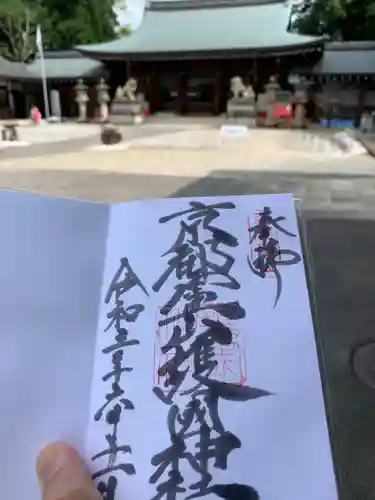 奉拝
京都霊山護國神社
令和三年六月十三日